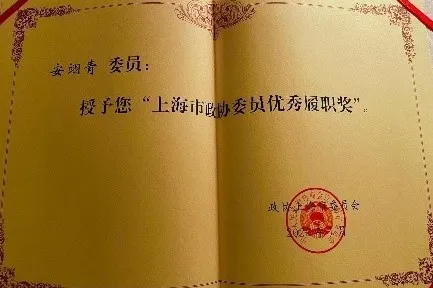 安翊青 委员：
授予您“上海市政协委员优秀履职奖”。
政协上海市委员会